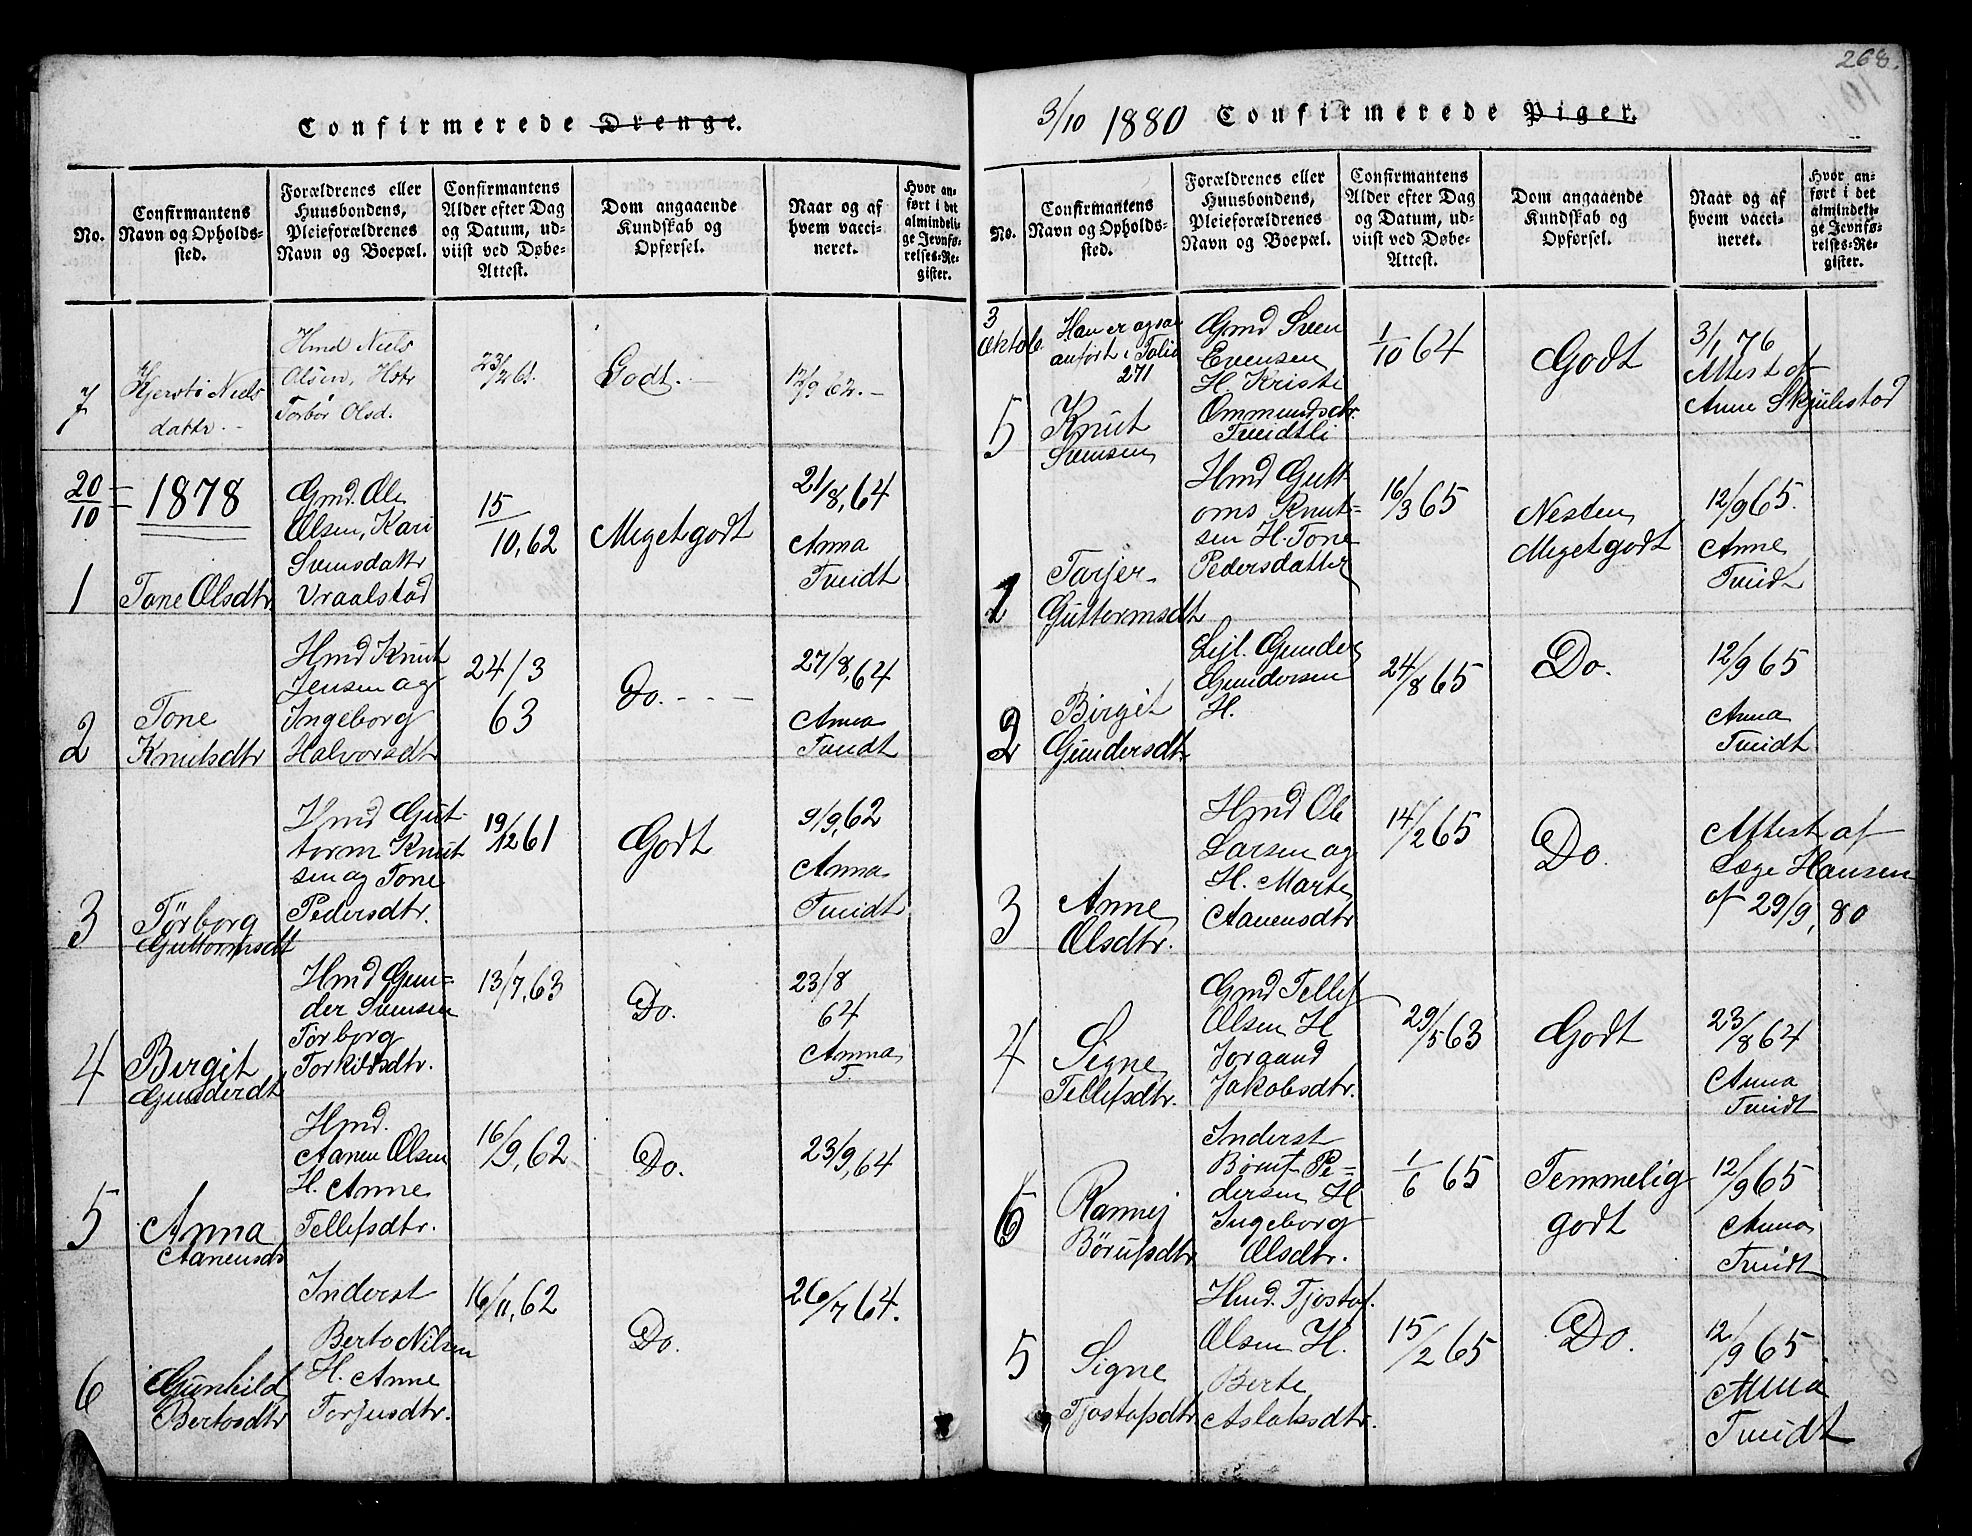 268.
Confirmerede Drenge.
No.
Confirmantens
Navn og Opholds-
sted.
Forældrenes eller
Huusbondens,
Pleieforældrenes
Navn og Boepæl.
Confirmantens
Alder efter Dag
og Datum, ud-
viist ved Døbe-
Attest.
Dom angaaende
Kundskab og
Opførsel.
Naar og af
hvem vacci-
neret.
Hvor an-
ført i det
almindeli-
ge Jevnfø-
relses-Re-
gister.
7
Kjersti Niels
dattr.
Hmd Niels
Olsen, Hstr
Torbør Olsd.
23/2 61.
Godt.
12/9 62.
20/10
1878
1
Tone Olsdtr.
Gmd. Ole
Olsen, Kari
Svensdattr
Vraalstad
15
10, 62
Meget godt
21/8, 64
Anna
Tveidt
2
Tone
Knutsdtr
Hmd Knut
Jensen og
Ingeborg
Halvorsdtr
24/3
63
Do.
27/8, 64
Anna
Tveidt
3
Tørborg
Guttormsdt
Hmd Gut-
torm Knut
sen og Tone
Pedersdtr.
19/12 61
Godt
9/9, 62
Anna
Tveidt
4
Birgit
Gunderdt
Hmd Gun-
der Svensen
Torborg
Torkildsdtr.
13/7, 63
Do.
23/8
64
Anna
T.
5
Anna
Aanensdt
Hmd.
Aanen Olsen
H. Anne
Tellefsdtr.
16/9, 62
Do.
23/9, 64
6
Gunhild
Bertosdtr
Inderst
Berto Nilsen
H. Anne
Torjusdtr.
16/11, 62
Do.
26/7 64.
3/10 1880 Confirmerede Piger.
No.
Confirmantens
Navn og Opholds-
sted.
Forældrenes eller
Huusbondens,
Pleieforældrenes
Navn og Boepæl.
Confirmantens
Alder efter Dag
og Datum, ud-
viist ved Døbe-
Attest.
Dom angaaende
Kundskab og
Opførsel.
Naar og af
hvem vacci-
neret.
Hvor an-
ført i det
almindeli-
ge Jevnfø-
relses-Re-
gister.
3
Oktob
5
Han er ogsaa
anført i Folio
271
Knut
Svensen
Gmd Sven
Evensen
H. Kristi
Ommundsdtr.
Tveidtli
1/10 64
Godt
3/1 76
Attest af
Anne Skjulestad
1
Tarjer
Guttormsdt
Hmd Gutt-
orms Knut-
sen H. Tone
Pedersdatter
16/3 65
Nesten
Meget godt
12/9 65.
Anne
Tveidt
2
Birgit
Gundersdt.
Lejl. Gunder
Gundersen
H.
24/8 65
Do.
12/9 65
Anna
Tveidt
3
Anne
Olsdtr.
Hmd Ole
Larsen og
H. Marte
Aanensdtr
14/2 65
Do.
Attest af
Læge Hansen
af 29/9, 80
4
Signe
Tellefsdtr.
Gmd Tellef
Olsen H
Jorgand
Jakobsdtr.
29/5 63
Godt
23/8 64
Anna
Tveidt
6
Rannej
Børufsdtr
Inderst
Børuf Pe-
dersen H
Ingeborg
Olsdtr.
1/6 65
Temmelig
godt
12/9 65
Anna
Tveidt
5
Signe
Tjostofsdtr
Hmd. Tjostof.
Olsen H.
Berte
Aslaksdtr.
15/2 65
Do.
12/9 65
Anna
Tveidt